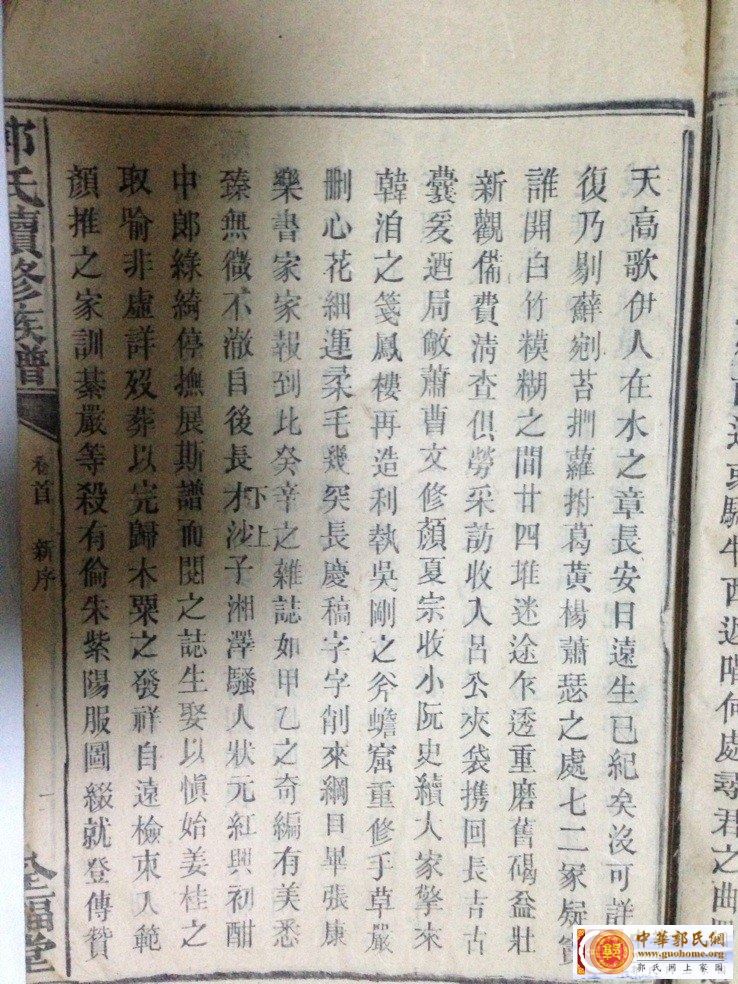 天高歌伊人在水之章長安日遠生已紀矣沒可詳
復乃剔蘚剜苔捫蘿拊葛黃楊蕭瑟之處七二冢疑實
誰開白竹糢糊之間廿四堆迷途乍透重磨舊碣益壯
新觀備費清查俱勞采訪收入呂公夾袋携回長吉古
囊爰酒局敞蕭曹文修顏夏宗收小阮史續大家擎來
韓洎之箋鳳樓再造利執吳剛之斧蟾窟重修手草嚴
刪心花細運柔毛幾突長慶稿字字削來綱目畢張康
樂書家家報到比癸辛之雜誌如甲乙之奇編有美悉
臻無微不澈自後長才沙子湘澤騷人狀元紅興初酣
下上
中郎綠綺停撫展斯譜而閱之誌生娶以慎始姜桂之
取喻非虛詳歿葬以完歸木粟之發祥自遠檢束入範
顏推之家訓綦嚴等殺有倫朱紫陽服圖綴就登傳贊
郭氏續修族譜
卷首 新序
全福堂
西迴唱何處尋君之曲
中華郭氏網
www.guohome.org
郭氏網上家園